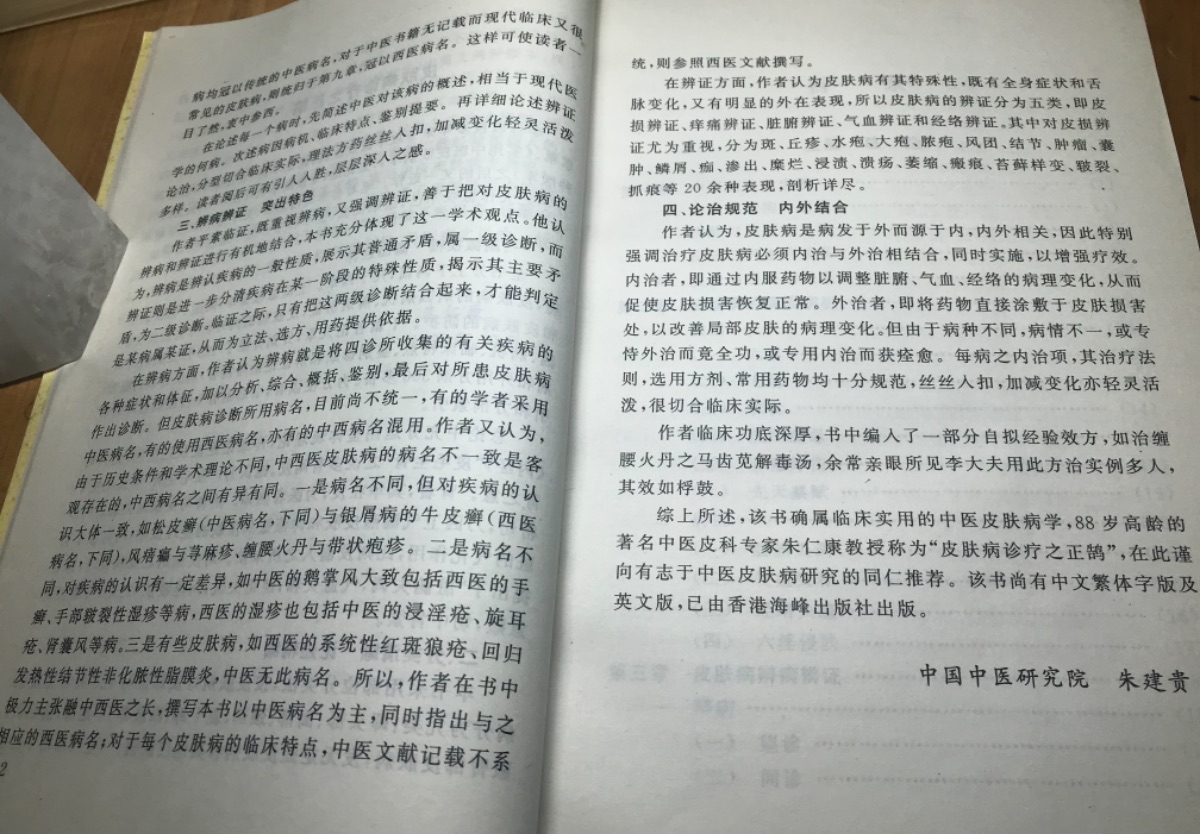 病均冠以传统的中医病名,对于中医书籍无记载而现代临床又很
常见的皮肤病,则统归于第九章,冠以西医病名。这样可使读者一
目了然,衷中参西。
在论述每一个病时,先简述中医对该病的概述,相当于现代医
学的何病。次述病因病机、临床特点、鉴别提要。再详细论述辨证
论治,分型切合临床实际,理法方药丝丝入扣,加减变化轻灵活泼
多样。读者阅后可有引人入胜,层层深入之感。
三、辨病辨证 突出特色
作者平素临证,既重视辨病,又强调辨证,善于把对皮肤病的
辨病和辨证进行有机地结合,本书充分体现了这一学术观点。他认
为,辨病是辨认疾病的一般性质,展示其普通矛盾,属一级诊断,而
辨证则是进一步分清疾病在某一阶段的特殊性质,揭示其主要矛
盾,为二级诊断。临证之际,只有把这两级诊断结合起来,才能判定
是某病属某证,从而为立法、选方、用药提供依据。
在辨病方面,作者认为辨病就是将四诊所收集的有关疾病的
各种症状和体征,加以分析、综合、概括、鉴别,最后对所患皮肤病
作出诊断。但皮肤病诊断所用病名,目前尚不统一,有的学者采用
中医病名,有的使用西医病名,亦有的中西病名混用。作者又认为,
由于历史条件和学术理论不同,中西医皮肤病的病名不一致是客
观存在的,中西病名之间有异有同。一是病名不同,但对疾病的认
识大体一致,如松皮癣(中医病名,下同)与银屑病的牛皮癣(西医
病名,下同),风瘙瘾与荨麻疹、缠腰火丹与带状疱疹。二是病名不
同,对疾病的认识有一定差异,如中医的鹅掌风大致包括西医的手
癣、手部皲裂性湿疹等病,西医的湿疹也包括中医的浸淫疮、旋耳
疮、肾囊风等病。三是有些皮肤病,如西医的系统性红斑狼疮、回归
发热性结节性非化脓性脂膜炎,中医无此病名。所以,作者在书中
极力主张融中西医之长,撰写本书以中医病名为主,同时指出与之
相应的西医病名;对于每个皮肤病的临床特点,中医文献记载不系
2
统,则参照西医文献撰写。
在辨证方面,作者认为皮肤病有其特殊性,既有全身症状和舌
脉变化,又有明显的外在表现,所以皮肤病的辨证分为五类,即皮
损辨证、痒痛辨证、脏腑辨证、气血辨证和经络辨证。其中对皮损辨
证尤为重视,分为斑、丘疹、水疱、大疱、脓疱、风团、结节、肿瘤、囊
肿、鳞屑、痂、渗出、糜烂、浸渍、溃疡、萎缩、瘢痕、苔藓样变、皲裂、
抓痕等 20 余种表现,剖析详尽。
四、论治规范 内外结合
作者认为,皮肤病是病发于外而源于内,内外相关,因此特别
强调治疗皮肤病必须内治与外治相结合,同时实施,以增强疗效。
内治者,即通过内服药物以调整脏腑、气血、经络的病理变化,从而
促使皮肤损害恢复正常。外治者,即将药物直接涂敷于皮肤损害
处,以改善局部皮肤的病理变化。但由于病种不同,病情不一,或专
恃外治而竟全功,或专用内治而获痊愈。每病之内治项,其治疗法
则,选用方剂、常用药物均十分规范,丝丝入扣,加减变化亦轻灵活
泼,很切合临床实际。
作者临床功底深厚,书中编入了一部分自拟经验效方,如治缠
腰火丹之马齿苋解毒汤,余常亲眼所见李大夫用此方治实例多人,
其效如桴鼓。
综上所述,该书确属临床实用的中医皮肤病学,88 岁高龄的
著名中医皮科专家朱仁康教授称为“皮肤病诊疗之正鹄”,在此谨
向有志于中医皮肤病研究的同仁推荐。该书尚有中文繁体字版及
英文版,已由香港海峰出版社出版。
中国中医研究院 朱建贵